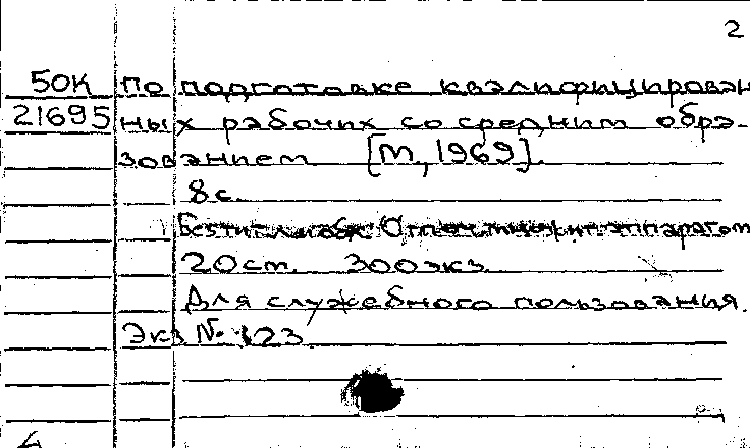 2
50К по подготовке квалифицирован
21695 ных рабочих со средним обра-
зованием [М, 1969].
8 с.
Без тит. л. и обл. Отпечат.
аппаратом
20 см. 300 экз.
Для служебного пользования.
Экз № 123.